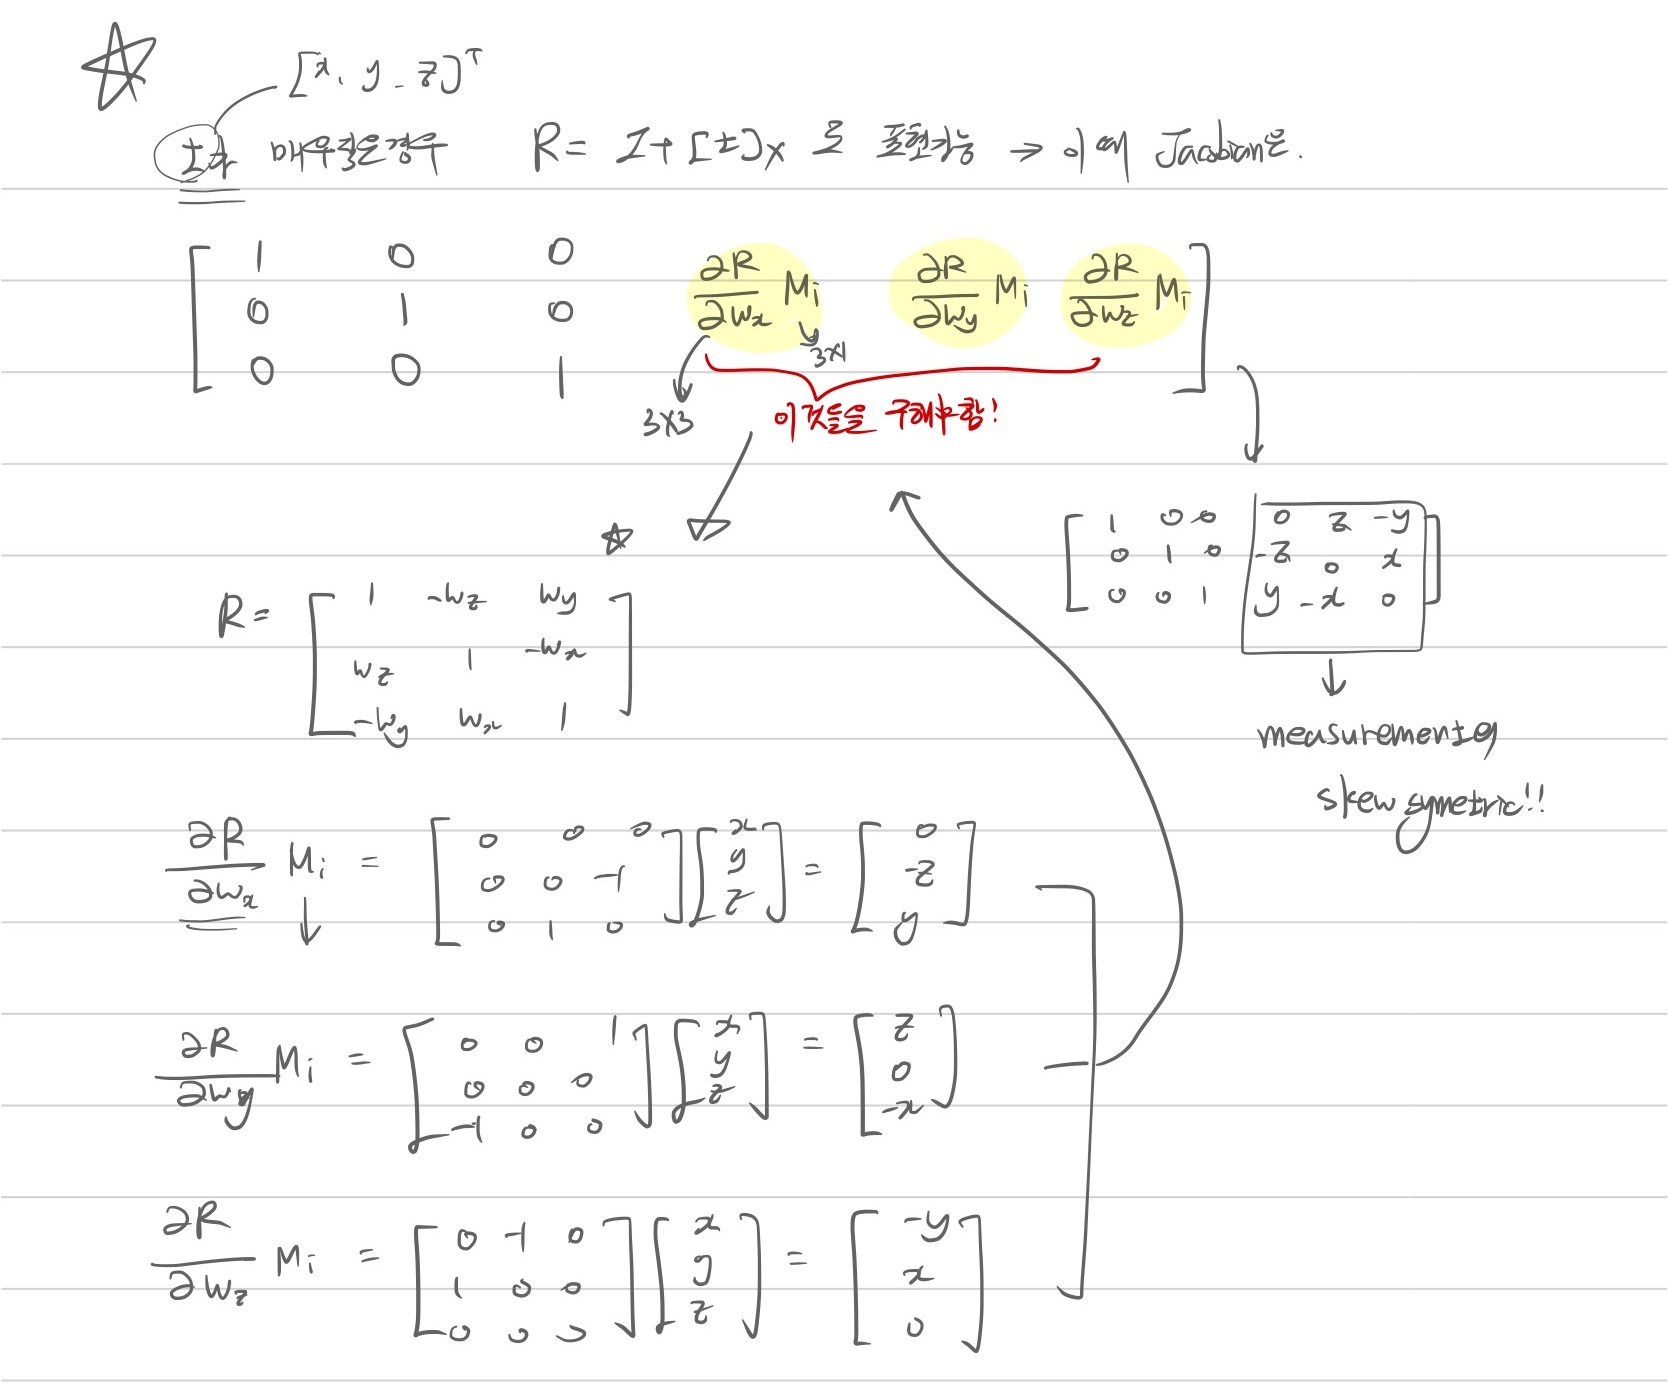 [x, y, z]ᵀ
t가 매우작은경우 R = I + [t]x 로 표현가능 → 이때 Jacobian은.
1 0 0 ∂R/∂wx Mi ∂R/∂wy Mi ∂R/∂wz Mi
0 1 0
0 0 1
3x1
3x3
이것들을 구해야함!
1 0 0 0 z -y
0 1 0 -z 0 x
0 0 1 y -x 0
R = [ 1 -wz wy
wz 1 -wx
-wy wx 1 ]
measurement의
skew symetric!!
∂R/∂wx Mi = [ 0 0 0 ; 0 0 -1 ; 0 1 0 ] [ x ; y ; z ] = [ 0 ; -z ; y ]
∂R/∂wy Mi = [ 0 0 1 ; 0 0 0 ; -1 0 0 ] [ x ; y ; z ] = [ z ; 0 ; -x ]
∂R/∂wz Mi = [ 0 -1 0 ; 1 0 0 ; 0 0 0 ] [ x ; y ; z ] = [ -y ; x ; 0 ]